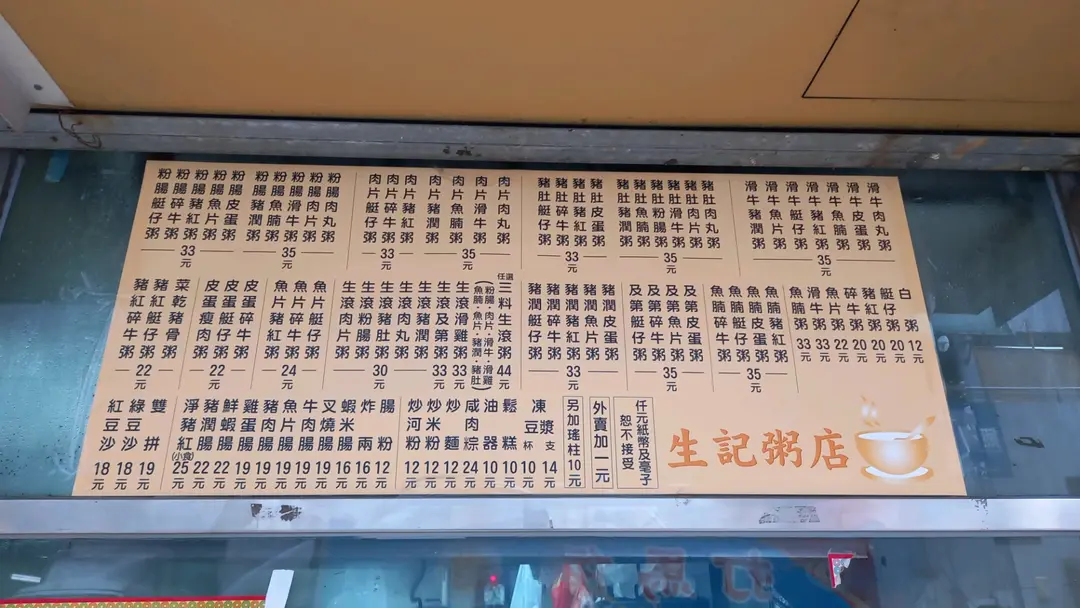 滑牛肉丸粥
滑牛皮蛋粥
滑牛魚腩粥
滑牛豬紅粥
滑牛艇仔粥
滑牛魚片粥
滑牛豬潤粥
35元
豬肚肉丸粥
豬肚肉片粥
豬肚滑牛粥
豬肚粉腸粥
豬肚魚腩粥
豬肚豬潤粥
35元
豬肚皮蛋粥
豬肚豬紅粥
豬肚碎牛粥
豬肚艇仔粥
33元
肉片肉丸粥
肉片滑牛粥
肉片魚腩粥
肉片豬潤粥
35元
肉片豬紅粥
肉片碎牛粥
肉片艇仔粥
33元
粉腸肉丸粥
粉腸肉片粥
粉腸滑牛粥
粉腸魚腩粥
粉腸豬潤粥
35元
粉腸皮蛋粥
粉腸魚片粥
粉腸豬紅粥
粉腸碎牛粥
粉腸艇仔粥
33元
白粥12元
艇仔粥20元
豬紅粥20元
碎牛粥20元
魚片粥22元
滑牛粥33元
魚腩粥33元
魚腩豬紅粥
魚腩皮蛋粥
魚腩艇仔粥
魚腩碎牛粥
35元
及第皮蛋粥
及第魚片粥
及第碎牛粥
及第艇仔粥
35元
豬潤皮蛋粥
豬潤魚片粥
豬潤豬紅粥
豬潤碎牛粥
豬潤艇仔粥
33元
任選三料生滾粥44元
(粉腸·肉片·滑牛·滑雞
魚腩·魚片·豬潤·豬肚)
生滾滑雞粥33元
生滾及第粥33元
生滾豬潤粥
生滾肉丸粥
生滾豬肚粥
生滾粉腸粥
生滾肉片粥
30元
魚片艇仔粥
魚片碎牛粥
魚片豬紅粥
24元
皮蛋碎牛粥
皮蛋艇仔粥
皮蛋瘦肉粥
22元
菜乾豬骨粥
豬紅艇仔粥
豬紅碎牛粥
22元
生記粥店
仟元紙幣及毫子
恕不接受
外賣加一元
另加瑤柱10元
凍豆漿
支14元
杯10元
鬆糕10元
油器10元
咸肉粽24元
炒麵12元
炒米粉12元
炒河粉12元
腸粉12元
炸兩16元
蝦米腸16元
叉燒腸19元
牛肉腸19元
魚片腸19元
豬肉腸19元
雞蛋腸19元
鮮蝦腸22元
豬潤腸22元
淨豬紅(小食)25元
雙拼19元
綠豆沙18元
紅豆沙18元